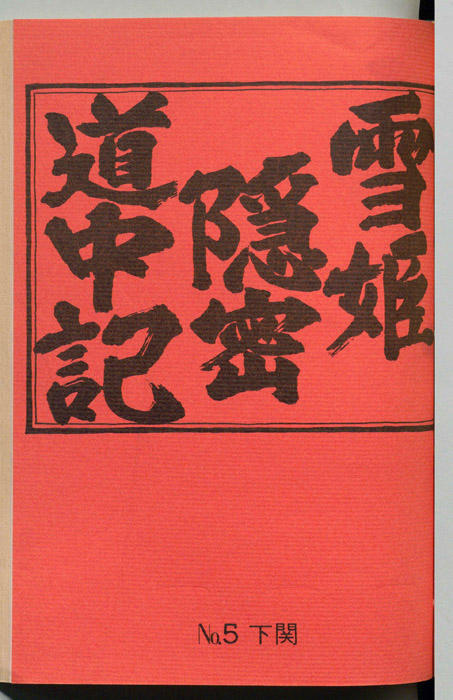 雪姫
隠密
道中記
No.5 下関